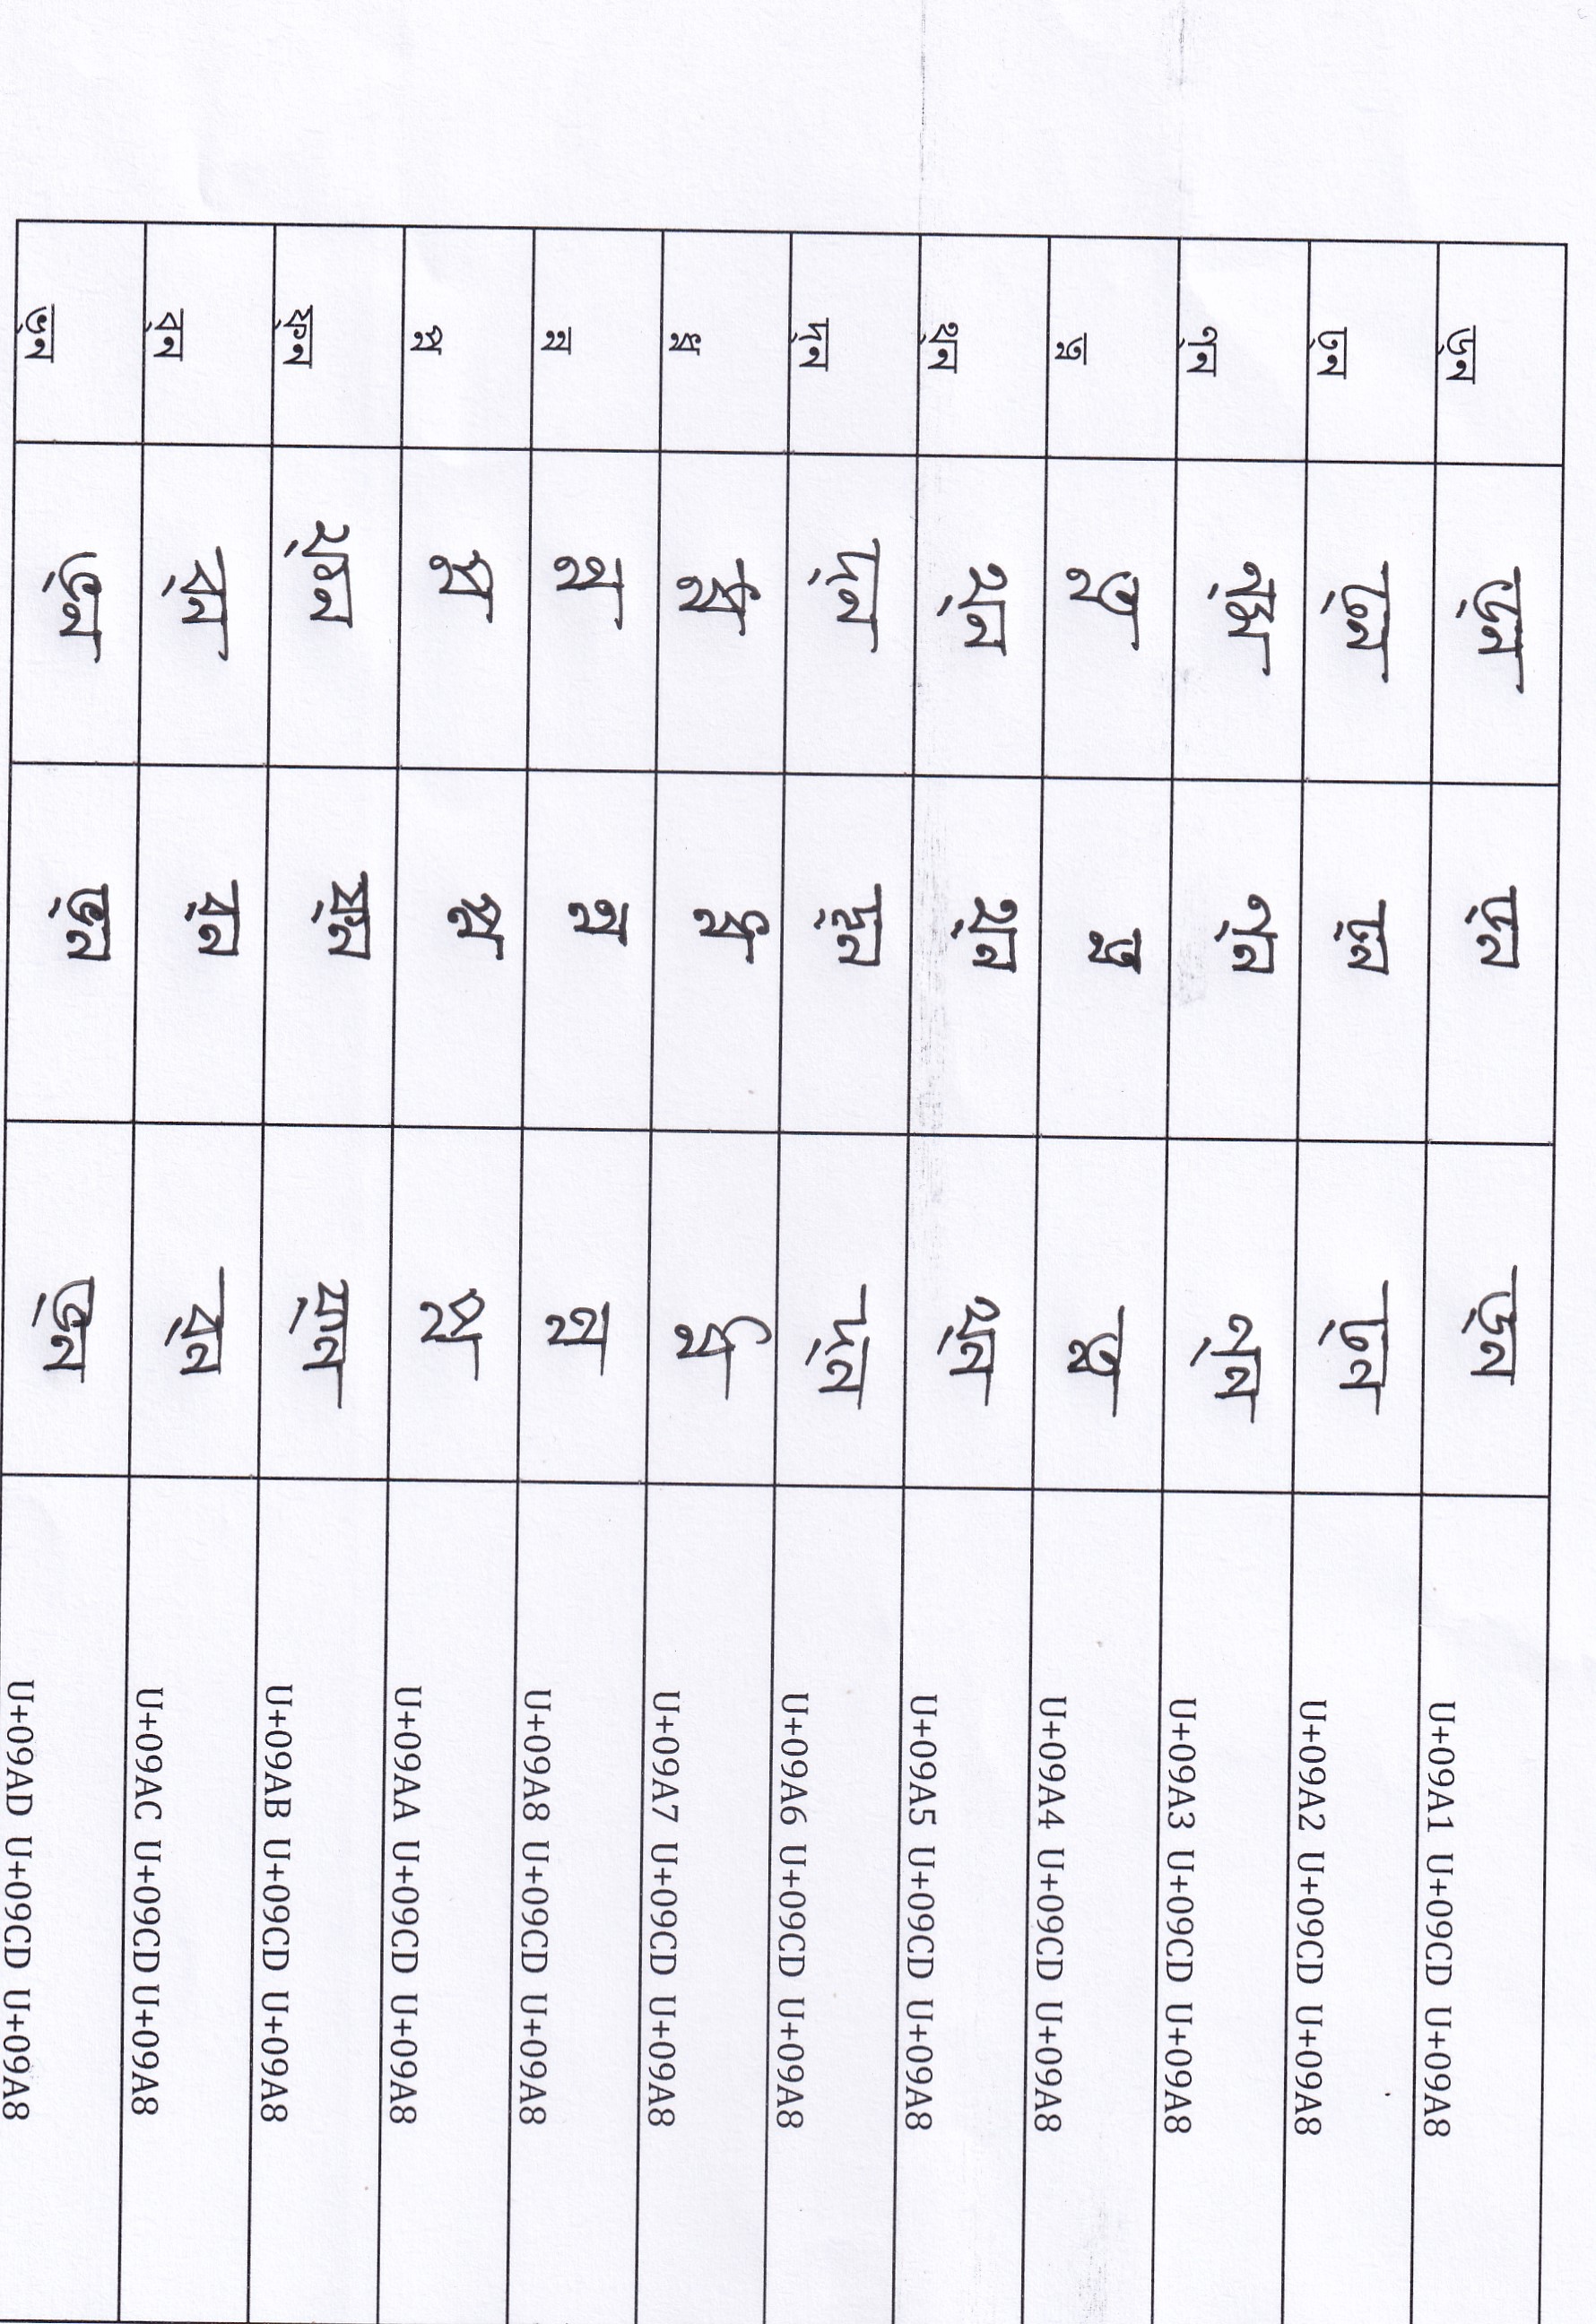 ড্‌ন ড্‌ন ড্‌ন ড্‌ন U+09A1 U+09CD U+09A8
ঢ্‌ন ঢ্‌ন ঢ্‌ন ঢ্‌ন U+09A2 U+09CD U+09A8
ণ্‌ন ন্‌ম ণ্‌ন ণ্‌ন U+09A3 U+09CD U+09A8
ত্ন ত্ন ত্ন ত্ন U+09A4 U+09CD U+09A8
থ্‌ন থ্‌ন থ্‌ন থ্‌ন U+09A5 U+09CD U+09A8
দ্‌ন দ্‌ন দ্‌ন দ্‌ন U+09A6 U+09CD U+09A8
ধ্ন ধ্ন ধ্ন ধ্ন U+09A7 U+09CD U+09A8
ন্ন ন্ন ন্ন ন্ন U+09A8 U+09CD U+09A8
প্ন প্ন প্ন প্ন U+09AA U+09CD U+09A8
ফ্‌ন ফ্‌ন ফ্‌ন ফ্‌ন U+09AB U+09CD U+09A8
ব্‌ন ব্‌ন ব্‌ন ব্‌ন U+09AC U+09CD U+09A8
ভ্‌ন ভ্‌ন ভ্‌ন ভ্‌ন U+09AD U+09CD U+09A8